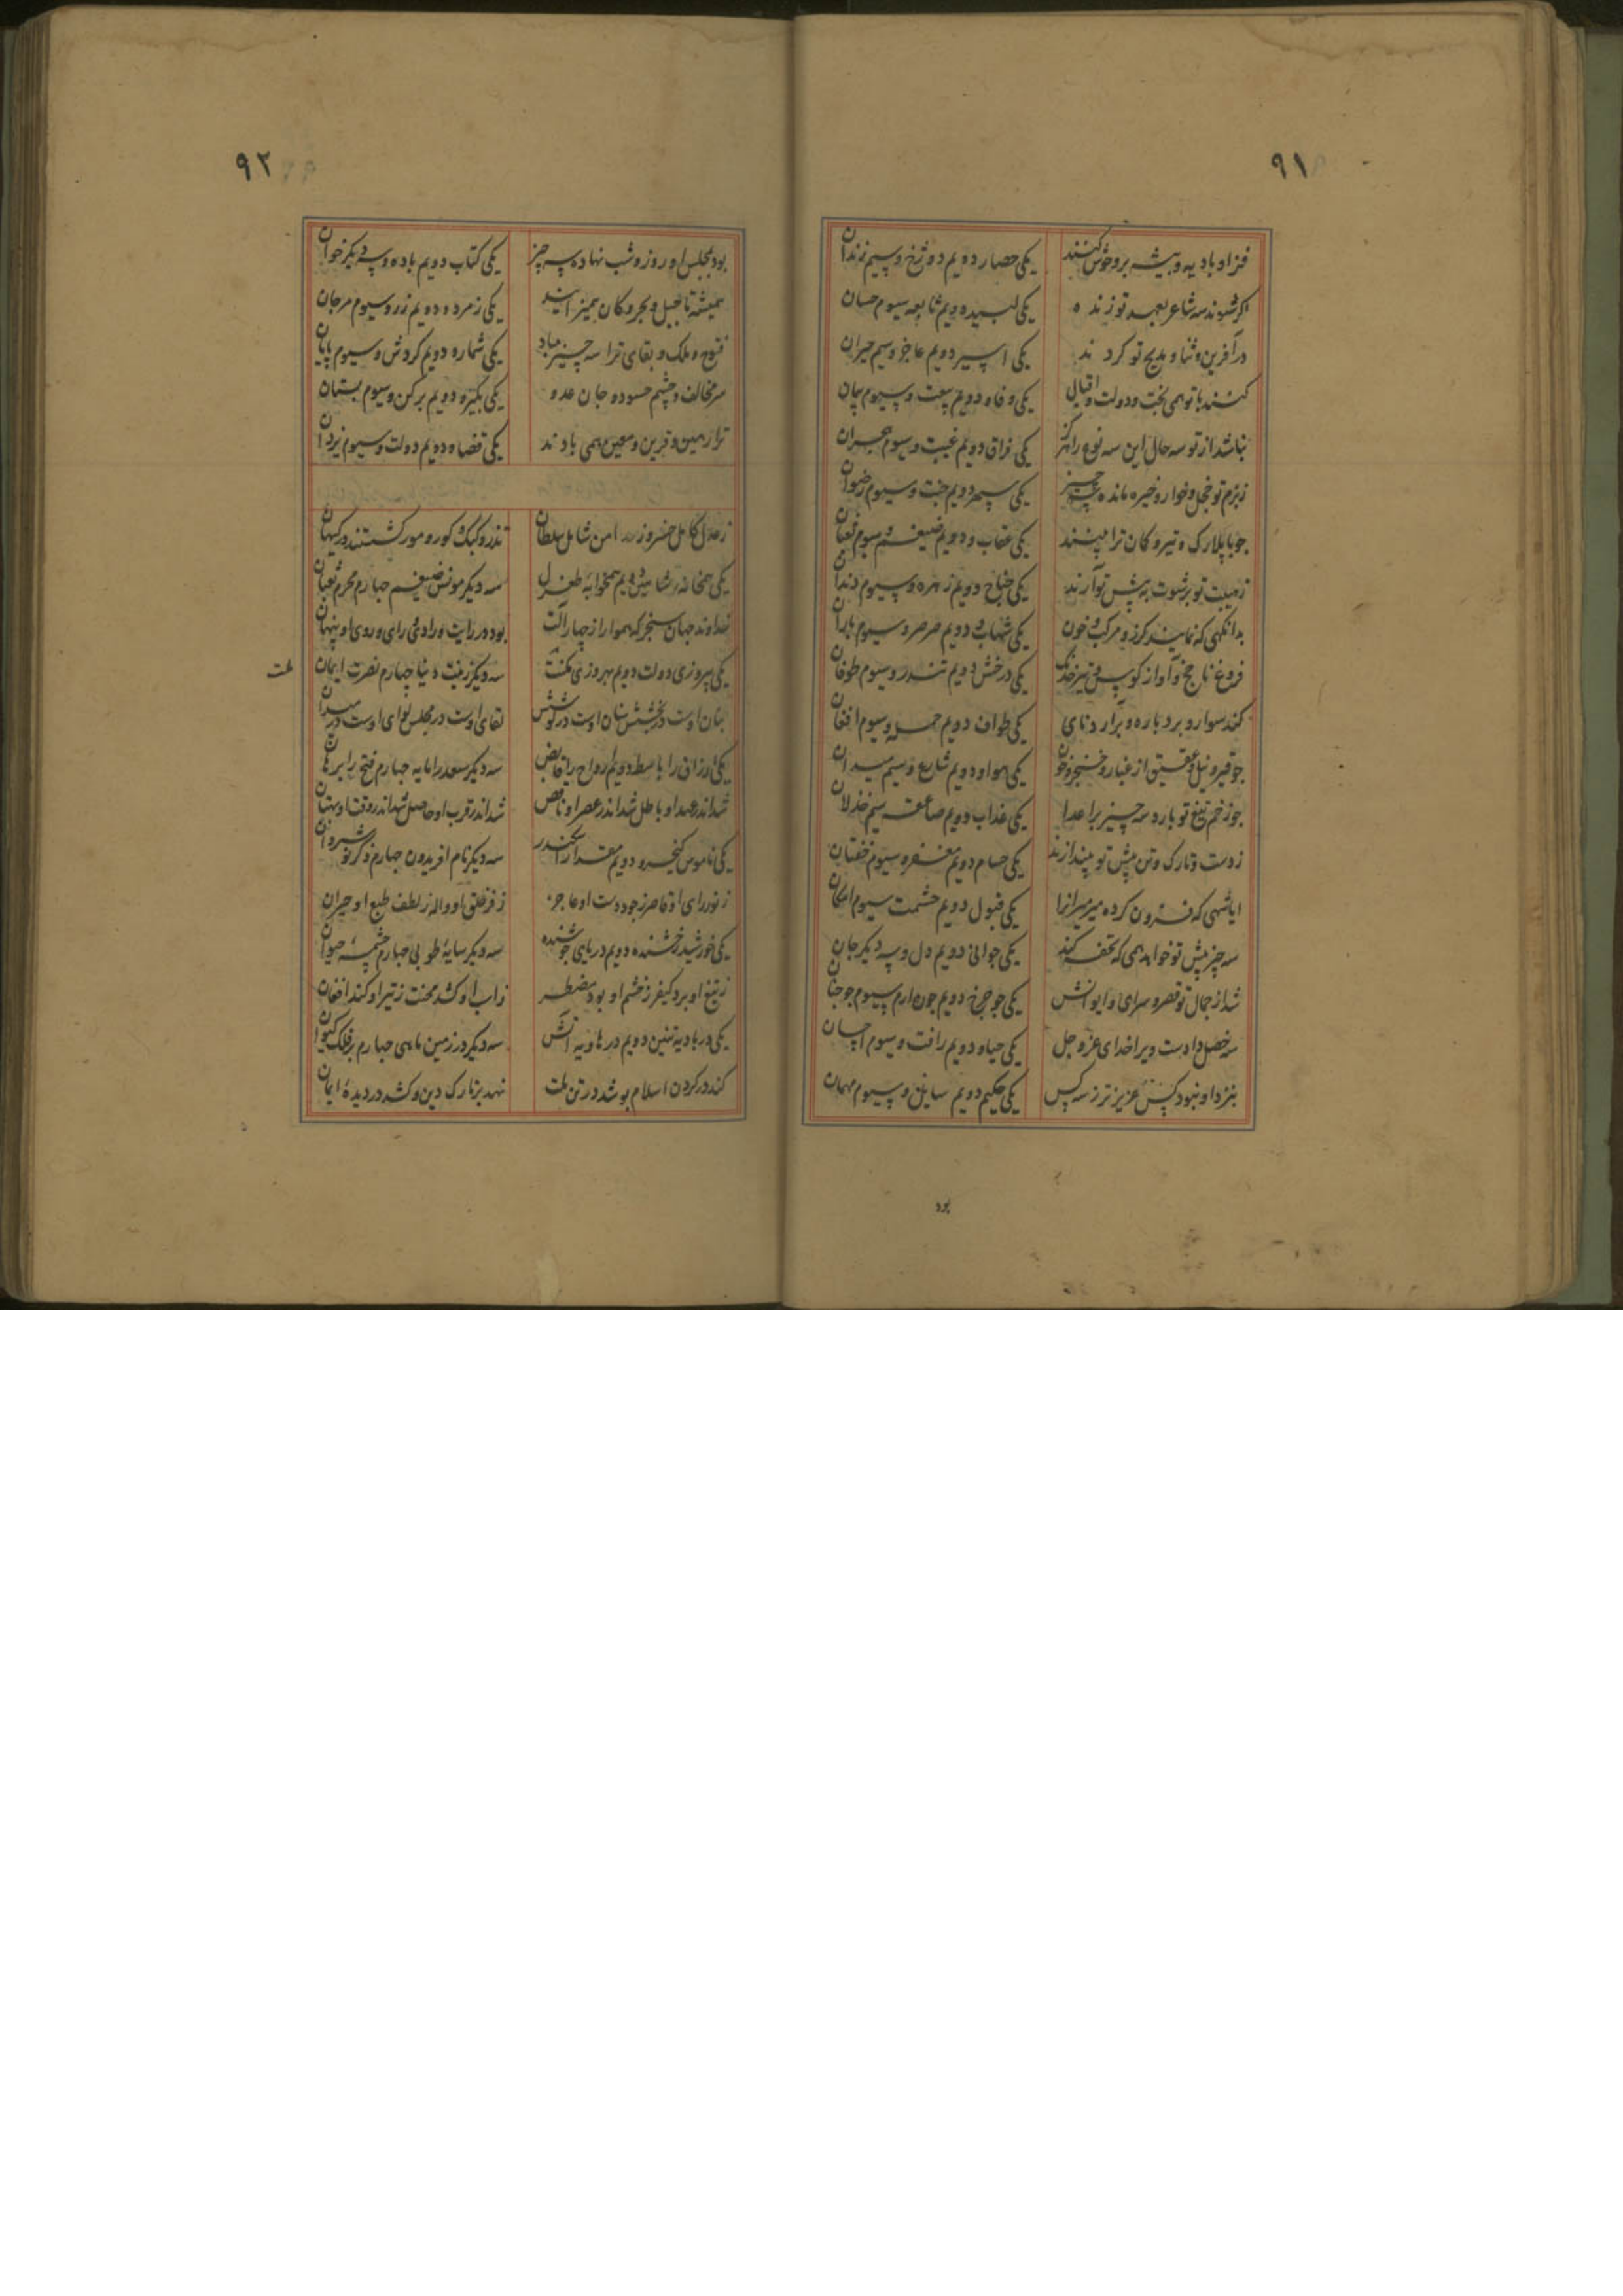 ۹۱
فزاد بادیه و بیشه بر وحوش کنند یکی حصار دویم دوزخ و سیم زندان
اکر شوند سه شاعر بعهد تو زنده یکی لبید دویم نابغه سیوم حسان
در آفرین و ثنا و مدیح تو کردند یکی اسیر دویم عاجز و سیم حیران
کنند با تو همی بخت و دولت و اقبال یکی وفا و دویم بیعت و سیوم پیمان
نباشد از تو سه حال این سه نوع را هرگز یکی فراق دویم غیبت و سیوم هجران
ز بزم تو خجل و خوار و خیره مانده سه چیز یکی سپهر دویم جنت و سیوم رضوان
چو با پلارک و تیر و کمان ترا بینند یکی عقاب و دویم ضیغم و سیوم ثعبان
ز هیبت تو بر شوت به پیش تو آرند یکی جناح دویم زهره و سیوم دندان
بدانکهی که نمایند کرز و مرکب و خون یکی شهاب و دویم صرصر و سیوم باران
فروغ ناجخ و آواز کوس و تیر خدنک یکی درخش دویم تندر و سیوم طوفان
کند سوار و برد باره و برارد نای یکی طواف دویم حمله و سیوم افغان
چو قیر و نیل و عقیق از غبار و خنجر و خون یکی هوا و دویم شارع و سیم میدان
چو زخم تیغ تو بارد سه چیز بر اعدا یکی عذاب دویم صاعقه سیم خذلان
ز دست و تارک و تن پیش تو بیندازند یکی حسام دویم مغفر و سیوم خفتان
ایا شهی که فزون کرده میر میرانرا یکی قبول دویم حشمت سیوم امکان
سه چیز پیش تو خواهد همی که تحفه کند یکی جوانی دویم دل و سه دیکر جان
شد از جمال تو قصر و سرای و ایوانش یکی چو چرخ دویم چون ارم سیوم چو جنان
سه خصل دادست ویرا خدای عز و جل یکی حیا و دویم رافت و سیوم احسان
بنزد او نبود کس عزیز تر ز سه کس یکی حکیم دویم سایل و سیوم مهمان
بود
۹۲
بود بمجلس او روز و شب نهاده سه چیز یکی کتاب دویم باده و سه دیکر خوان
همیشه تا جبل و بحر و کان همیز ایند یکی زمرد و دویم زر و سیوم مرجان
فتوح و ملک و بقای ترا سه چیز مباد یکی شماره دویم کردش و سیوم پایان
سر مخالف و چشم حسود و جان عدو یکی بکیر و دویم بر کن و سیوم بستان
ترا رهین و قرین و معین همی بادند یکی قضا و دویم دولت و سیوم یزدان
ز عدل کامل خسرو ز امن شامل سلطان تذرو و کبک و کور و مور کشتند در کیهان
یکی همخانه شاهین دویم همخوابه طغرل سه دیکر مونس ضیغم چهارم محرم ثعبان
خداوند جهان سنجر که همواره از چهار آلت بود در رایت و رادی و رای و روی او پنهان
یکی پیروزی دولت دویم بهروزی ملت سه دیکر زینت دنیا چهارم نصرت ایمان
ملت
بنان اوست در بخشش سنان اوست در کوشش لقای اوست در مجلس لوای اوست در میدان
یکی ارزاق را باسط دویم ارواح را قابض سه دیکر سعد را مایه چهارم فتح را برهان
شد اندر عهد او باطل شد اندر عصر او ناقص شد اندر قرب او حاصل شد اندر وقت او بهتان
یکی ناموس کیخسرو دویم مقدار اسکندر سه دیکر نام افریدون چهارم ذکر نوشروان
ز نور رای او قاصر ز جود دست او عاجز ز فر خلق او واله ز لطف طبع او حیران
یکی خورشید رخشنده دویم دریای جوشنده سه دیکر سایه طوبی چهارم چشمه حیوان
ز تیغ او برد کیفر ز خشم او بود مضطر ز اب او کشد محنت ز تیر او کند افغان
یکی در بادیه تنین دویم در هاویه آتش سه دیکر در زمین ماهی چهارم بر فلک کیوان
کند در کردن اسلام پوشد در تن ملت نهد بر تارک دین و کشد در دیده ایمان